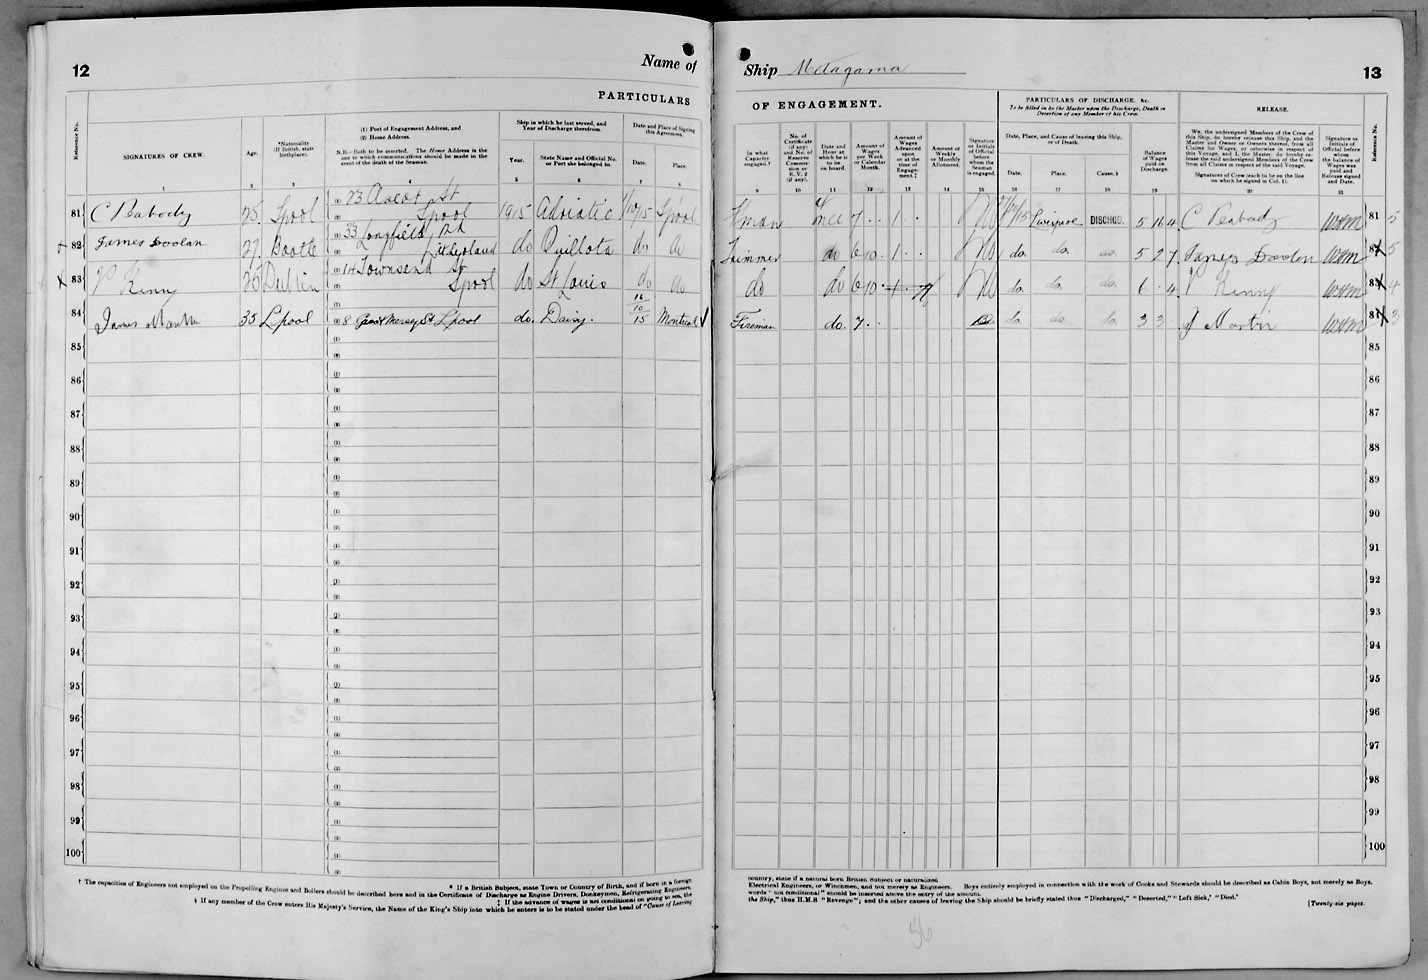 12
Name of
PARTICULARS
Reference No.
SIGNATURES OF CREW.
Age.
*Nationality
(If British, state
birthplace).
(1) Port of Engagement Address, and
(2) Home Address.
N.B.—Both to be inserted. The Home Address is the
one to which communications should be made in the
event of the death of the Seaman.
Ship in which he last served, and
Year of Discharge therefrom.
Year.
State Name and Official No.
or Port she belonged to.
Date and Place of Signing
this Agreement.
Date.
Place.
1 2 3 4 5 6 7 8
81 C Peabody 25 Lpool (1) 23 Ascot St (2) Lpool 1915 Adriatic Lpool
82 James Doolan 27 Bootle (1) 33 Longfield Rd (2) Litherland do Quillota do do
83 P Kinny 25 Dublin (1) 14 Townsend St (2) Lpool do St Louis do do
84 James Martin 35 Lpool 8 Great Mersey St Lpool do. Daisy. 16/10/15 Montreal
85 (1) (2)
86 (1) (2)
87 (1) (2)
88 (1) (2)
89 (1) (2)
90 (1) (2)
91 (1) (2)
92 (1) (2)
93 (1) (2)
94 (1) (2)
95 (1) (2)
96 (1) (2)
97 (1) (2)
98 (1) (2)
99 (1) (2)
100 (1) (2)
* If a British Subject, state Town or Country of Birth, and if born in a foreign
† The capacities of Engineers not employed on the Propelling Engines and Boilers should be described here and in the Certificate of Discharge as Engine Drivers, Donkeymen, Refrigerating Engineers,
‡ If the advance of wages is not conditional on going to sea, the
§ If any member of the Crew enters His Majesty's Service, the Name of the King's Ship into which he enters is to be stated under the head of "Cause of Leaving
Ship Metagama
13
OF ENGAGEMENT.
PARTICULARS OF DISCHARGE, &c.
To be filled in by the Master upon the Discharge, Death or
Desertion of any Member of his Crew.
RELEASE.
In what
Capacity
engaged.†
No. of
Certificate
(if any)
and No. of
Reserve
Commis-
sion or
R.V.2
(if any).
Date and
Hour at
which he is
to be
on board.
Amount of
Wages
per Week
or Calendar
Month.
Amount of
Wages
Advanced
upon
or at the
time of
Engage-
ment.‡
Amount of
Weekly
or Monthly
Allotment.
Signature
or Initials
of Official
before
whom the
Seaman
is engaged.
Date, Place, and Cause of leaving this Ship,
or of Death.
Date.
Place.
Cause.§
Balance
of Wages
paid on
Discharge.
We, the undersigned Members of the Crew of
this Ship, do hereby release this Ship, and the
Master and Owner or Owners thereof, from all
Claims for Wages, or otherwise in respect of
this Voyage, and I, the Master, do hereby re-
lease the said undersigned Members of the Crew
from all Claims in respect of the said Voyage.
Signatures of Crew (each to be on the line
on which he signed in Col. 1).
Signature or
Initials of
Official before
whom
the balance of
Wages was
paid and
Release signed
and Date.
Reference No.
9 10 11 12 13 14 15 16 17 18 19 20 21
Fman once 7 . . 1 . . Liverpool DISCHGD. 5 16 4 C Peabody 81 5
Trimmer do 6 10 . 1 . . do. do. do. 5 2 7 James Doolan 82 5
do do 6 10 . 1 . . do. do. do. 6 . 4 P Kinny 83 4
Fireman do. 7 . . do. do. do. 3 3 . J Martin 84 3
85
86
87
88
89
90
91
92
93
94
95
96
97
98
99
100
country, state if a natural born British Subject or naturalized.
Electrical Engineers, or Winchmen, and not merely as Engineers. Boys entirely employed in connection with the work of Cooks and Stewards should be described as Cabin Boys, not merely as Boys.
words "not conditional" should be inserted above the entry of the amount.
the Ship," thus H.M.S "Revenge"; and the other causes of leaving the Ship should be briefly stated thus "Discharged," "Deserted," "Left Sick," "Died."
[Twenty-six pages.
56